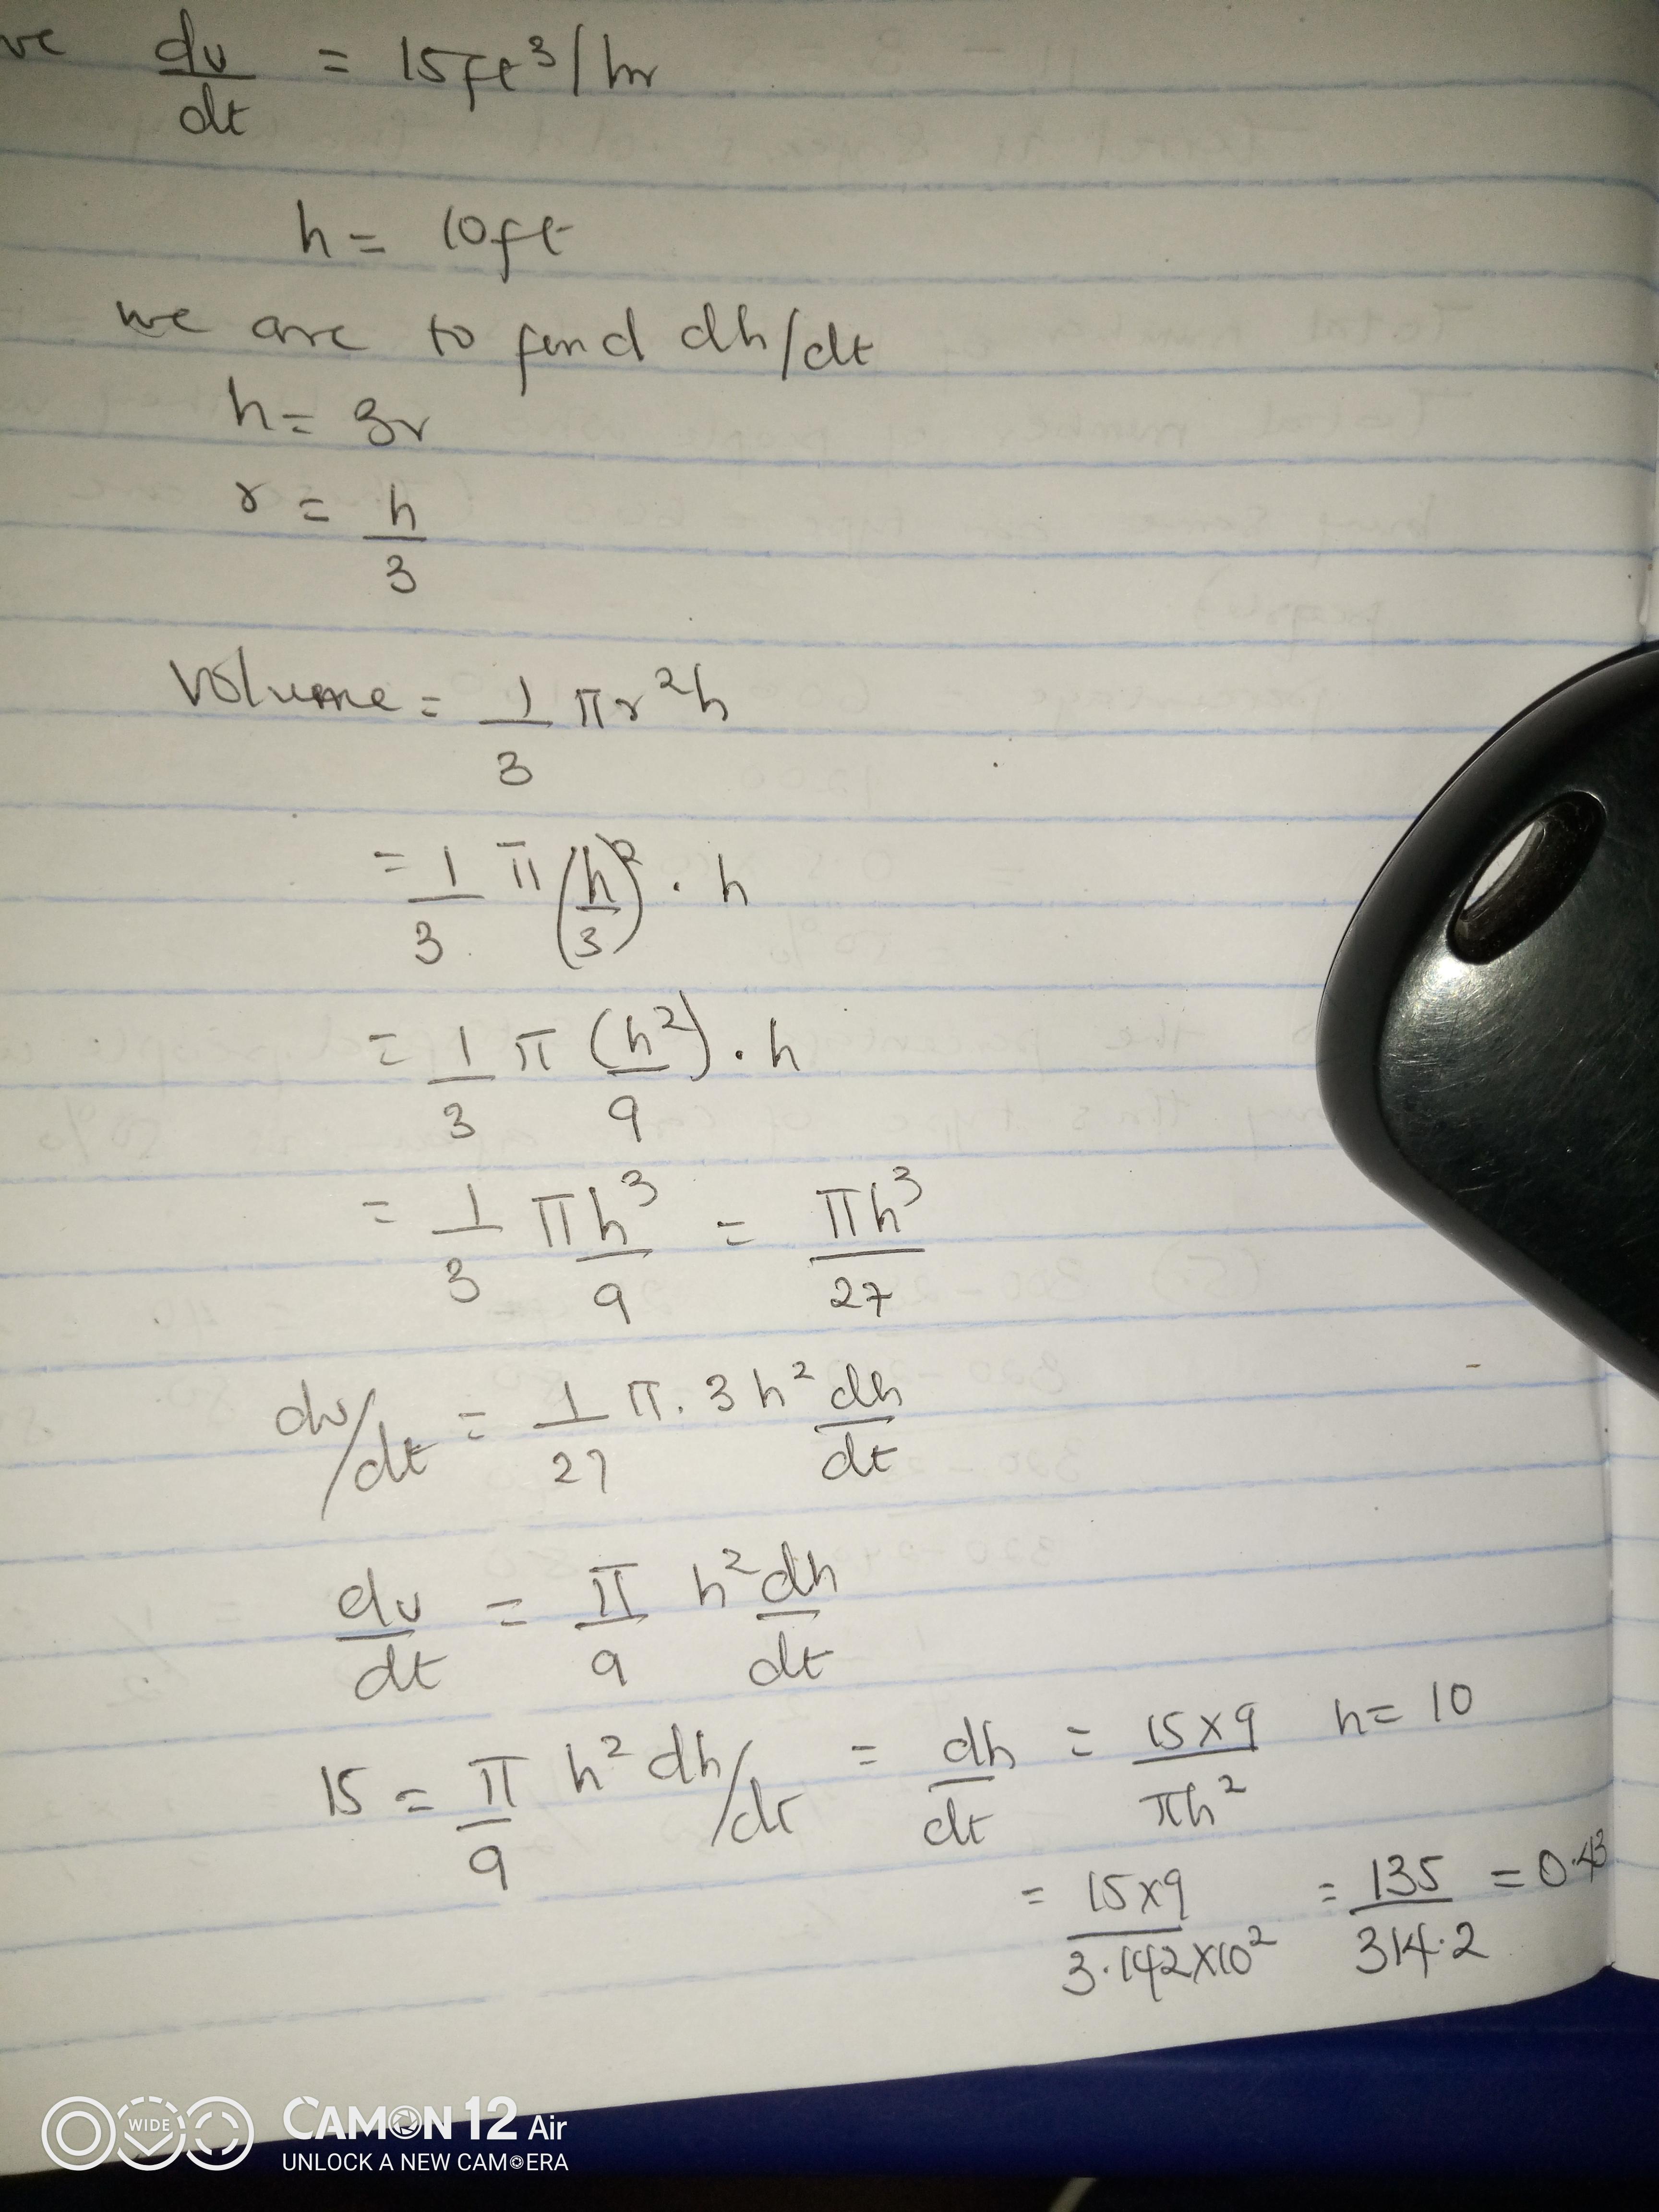 ve dv/dt = 15ft³/hr
h = 10ft
we are to find dh/dt
h = 3r
r = h/3
Volume = 1/3 πr²h
= 1/3 π(h/3)² · h
= 1/3 π(h²/9) · h
= 1/3 πh³/9 = πh³/27
dv/dt = 1/27 π. 3h² dh/dt
dv/dt = π/9 h² dh/dt
15 = π/9 h² dh/dt = dh/dt = 15×9/πh² h = 10
= 15×9/3.142×10² = 135/314.2 = 0.43
WIDE
CAMON 12 Air
UNLOCK A NEW CAMERA